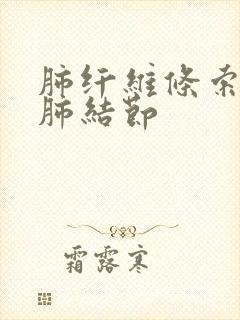 肺纤維條索
肺結節
霜露寒